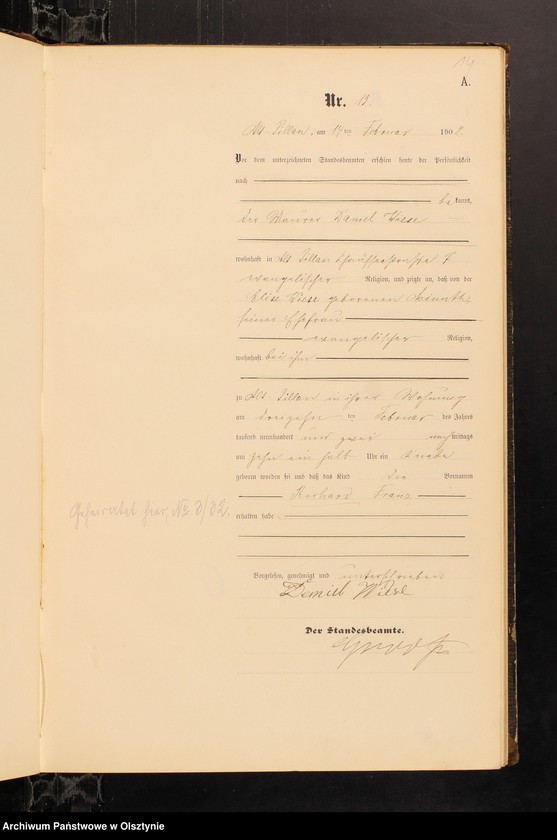 14
A.
Nr. 13.
Alt Pillau, am 14ten Februar 1902.
Vor dem unterzeichneten Standesbeamten erschien heute der Persönlichkeit
nach
bekannt,
der Maurer Daniel Wiese
wohnhaft in Alt Pillau
evangelischer Religion, und zeigte an, daß von der
Elise Wiese geborenen
seiner Ehefrau
evangelischer Religion,
wohnhaft bei ihm
zu Alt Pillau in ihrer Wohnung
am dreizehn ten Februar des Jahres
tausend neunhundert und zwei nachmittags
um zehn ein halb Uhr ein Knabe
geboren worden sei und daß das Kind die Vornamen
Franz
erhalten habe
Vorgelesen, genehmigt und unterschrieben
Daniel Wiese
Der Standesbeamte.
Geheiratet hier, No
Archiwum Państwowe w Olsztynie